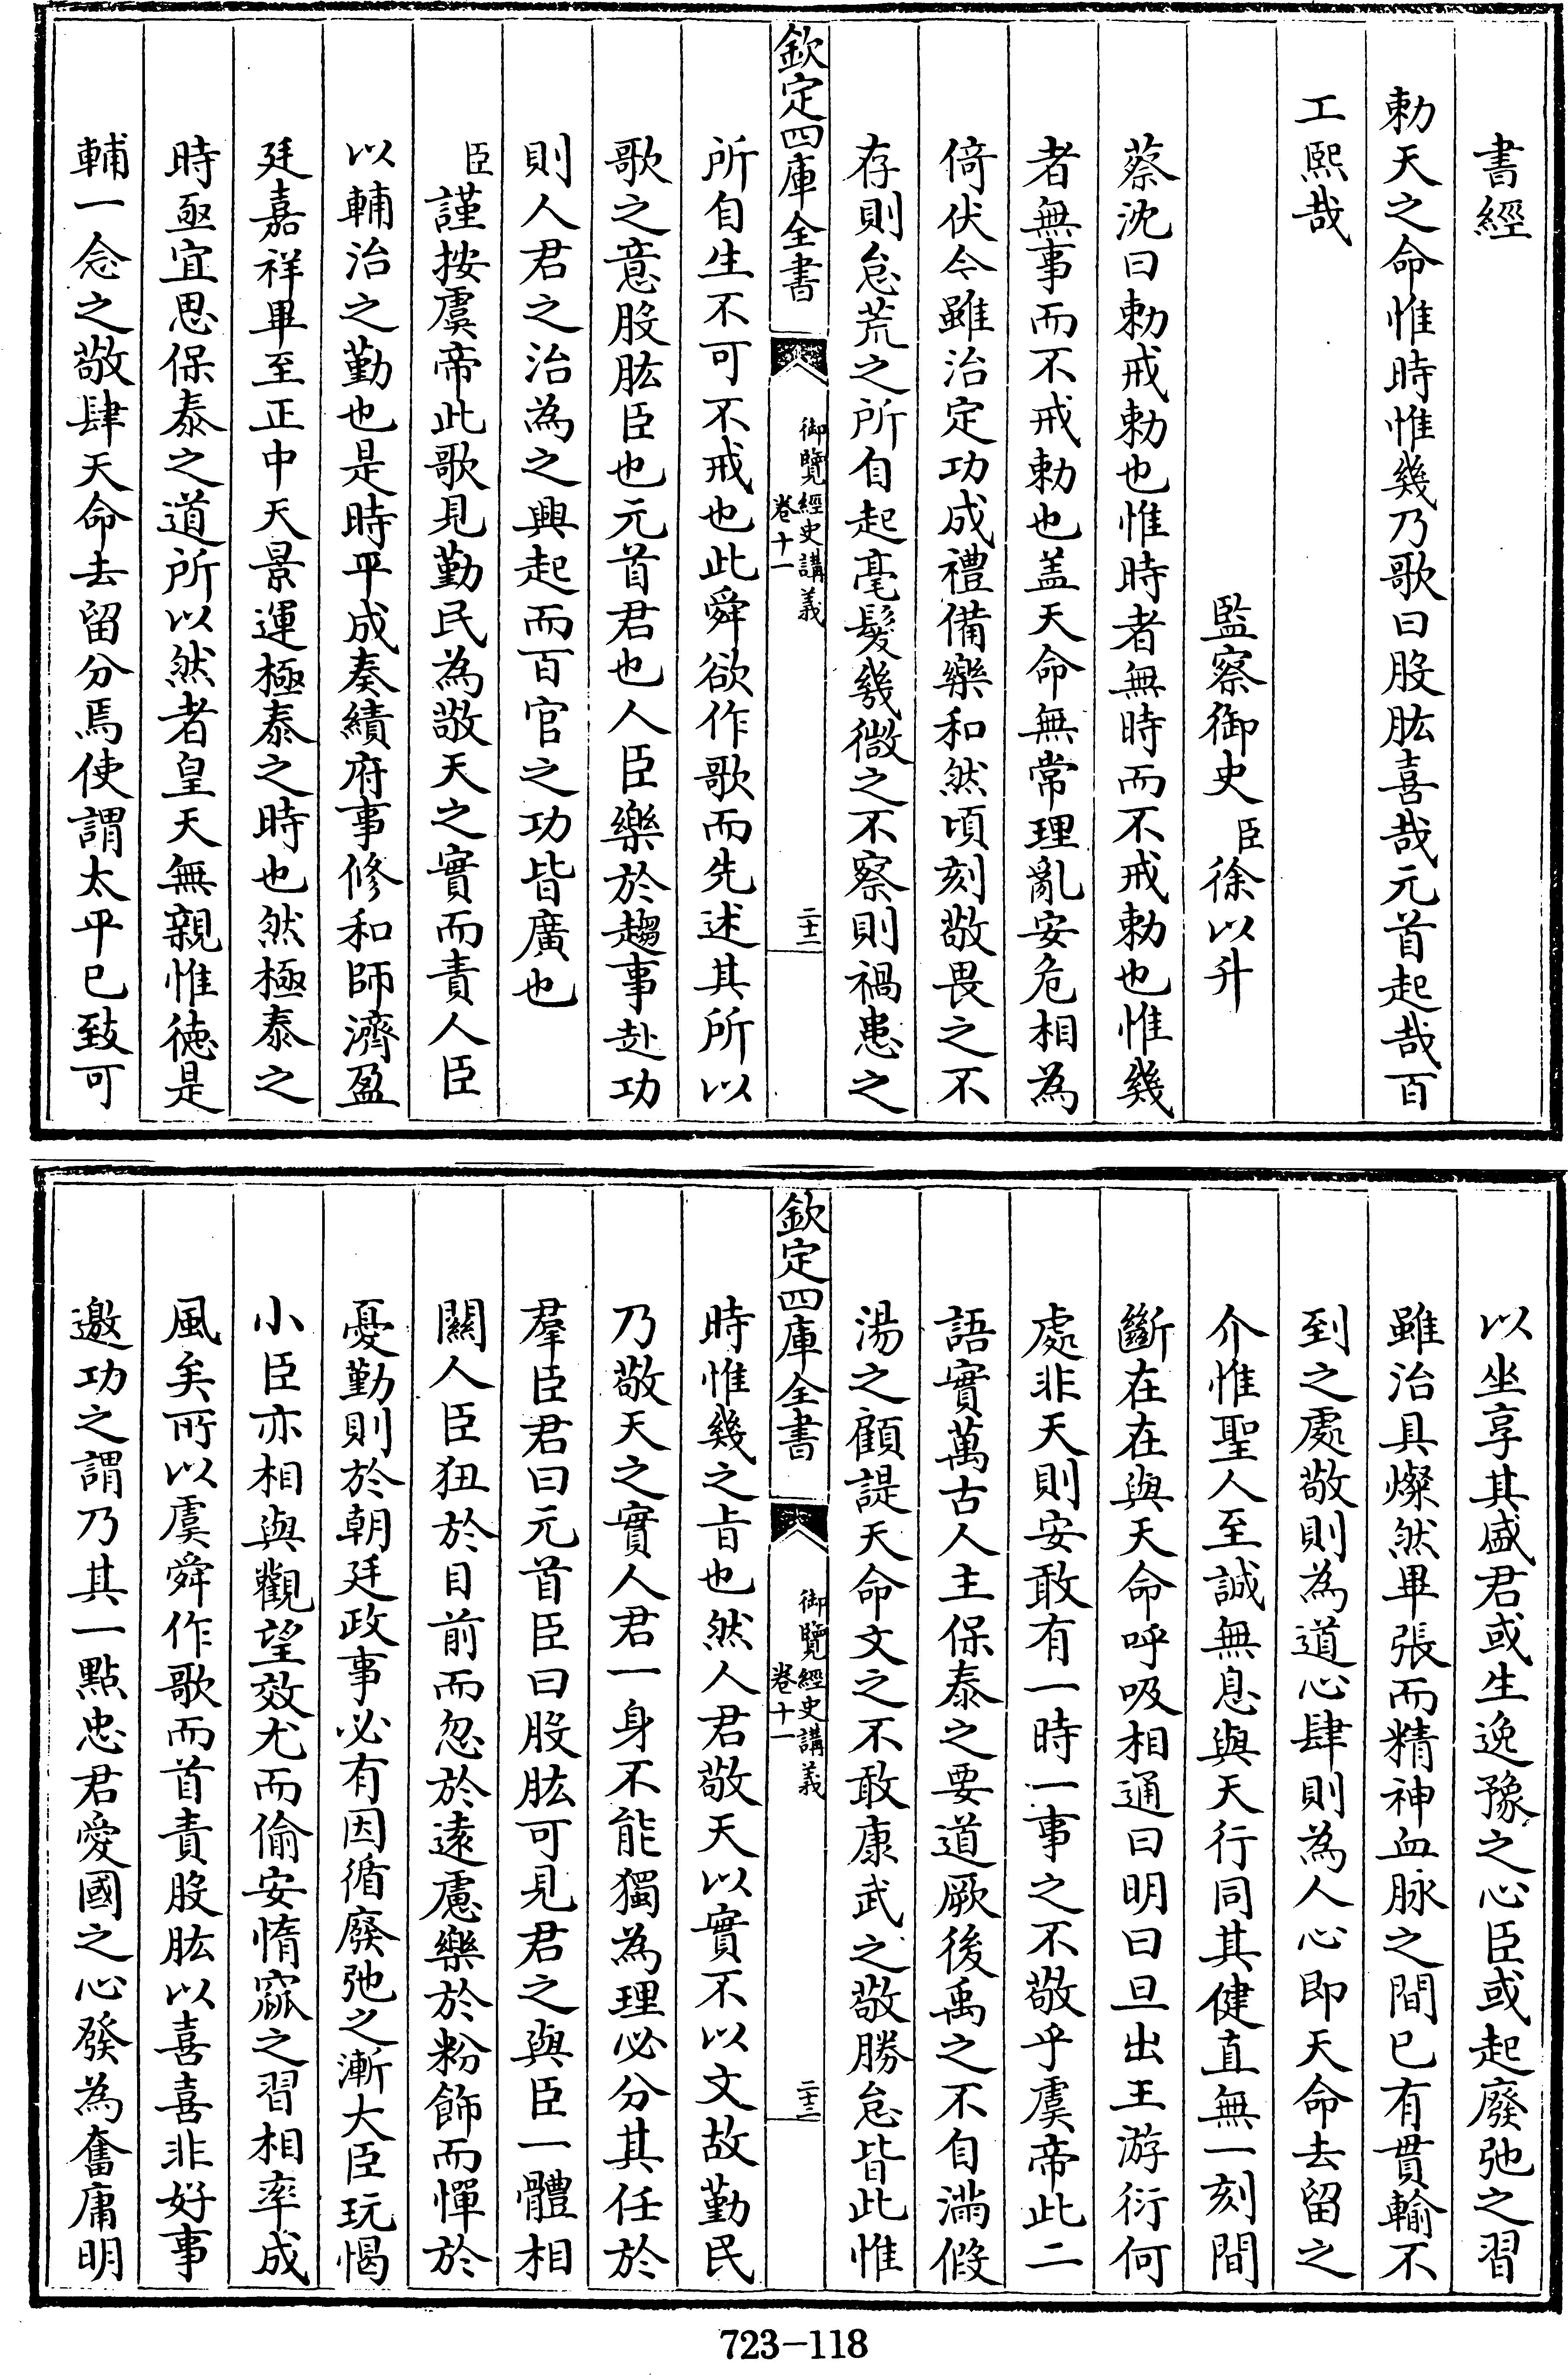 書經
勅天之命惟時惟幾乃歌曰股肱喜哉元首起哉百
工熙哉
監察御史臣徐以升
蔡沈曰勅戒勅也惟時者無時而不戒勅也惟幾
者無事而不戒勅也盖天命無常理亂安危相為
倚伏今雖治定功成禮備樂和然頃刻敬畏之不
存則怠荒之所自起毫髮幾微之不察則禍患之
欽定四庫全書
御覽經史講義
卷十一
二十二
所自生不可不戒也此舜欲作歌而先述其所以
歌之意股肱臣也元首君也人臣樂於趨事赴功
則人君之治為之興起而百官之功皆廣也
臣謹按虞帝此歌見勤民為敬天之實而責人臣
以輔治之勤也是時平成奏績府事修和師濟盈
廷嘉祥畢至正中天景運極泰之時也然極泰之
時亟宜思保泰之道所以然者皇天無親惟德是
輔一念之敬肆天命去留分焉使謂太平已致可
以坐享其盛君或生逸豫之心臣或起廢弛之習
雖治具燦然畢張而精神血脉之間已有貫輸不
到之處敬則為道心肆則為人心即天命去留之
介惟聖人至誠無息與天行同其健直無一刻間
斷在在與天命呼吸相通曰明曰旦出王游衍何
處非天則安敢有一時一事之不敬乎虞帝此二
語實萬古人主保泰之要道厥後禹之不自滿假
湯之顧諟天命文之不敢康武之敬勝怠皆此惟
欽定四庫全書
御覽經史講義
卷十一
二十三
時惟幾之旨也然人君敬天以實不以文故勤民
乃敬天之實人君一身不能獨為理必分其任於
羣臣君曰元首臣曰股肱可見君之與臣一體相
關人臣狃於目前而忽於遠慮樂於粉飾而憚於
憂勤則於朝廷政事必有因循廢弛之漸大臣玩愒
小臣亦相與觀望效尤而偷安惰窳之習相率成
風矣所以虞舜作歌而首責股肱以喜喜非好事
邀功之謂乃其一點忠君愛國之心發為奮庸明
723-118